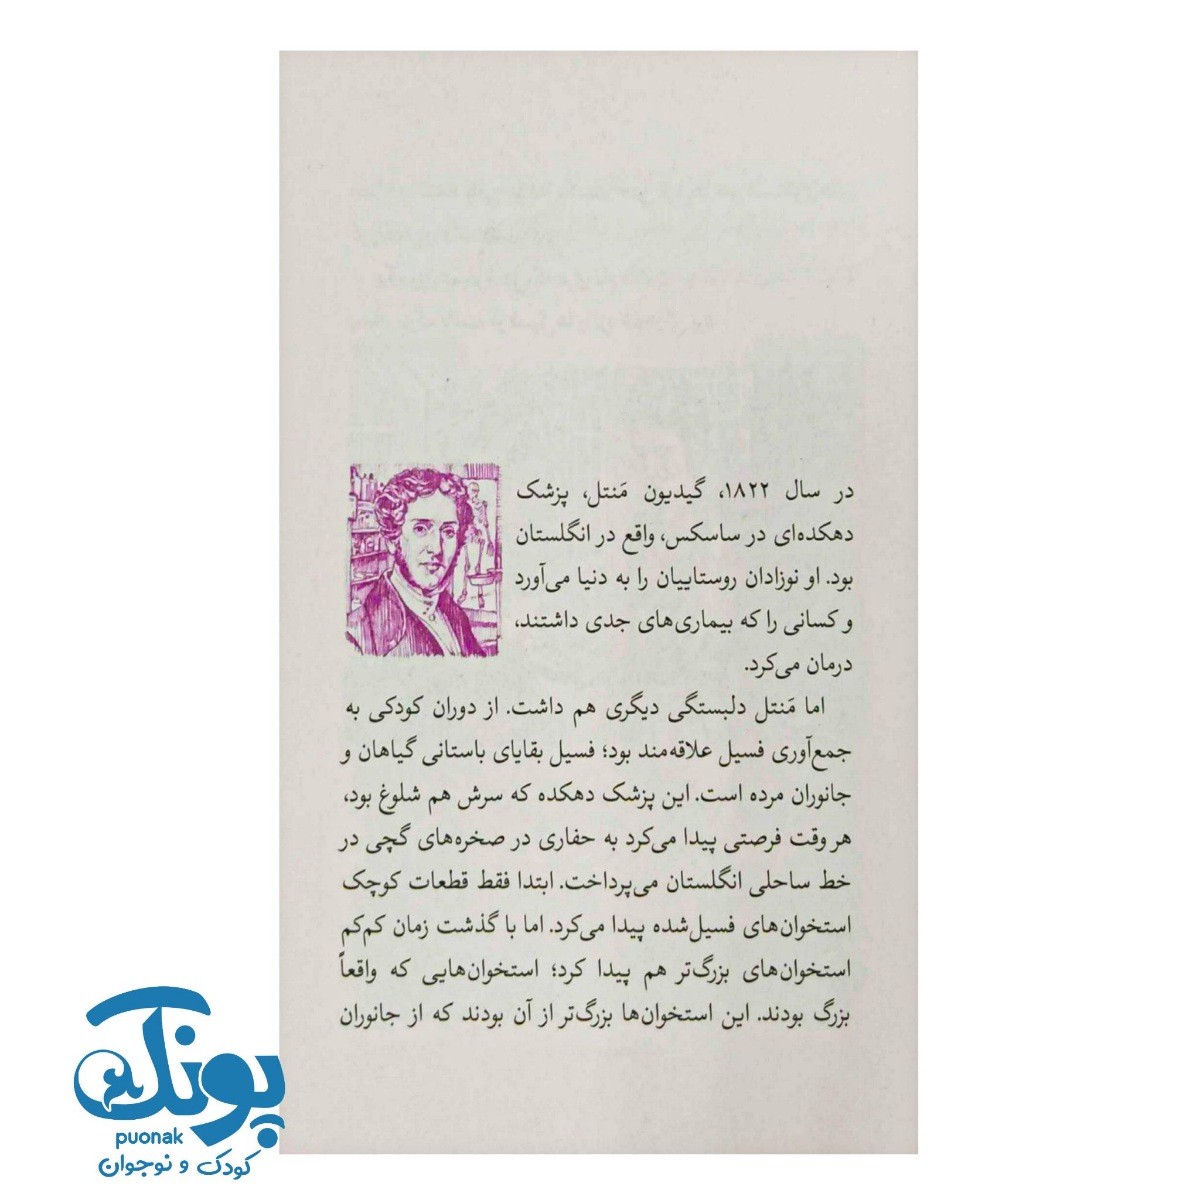 در سال ۱۸۲۲، گیدیون مَنتل، پزشک
دهکده‌ای در ساسکس، واقع در انگلستان
بود. او نوزادان روستاییان را به دنیا می‌آورد
و کسانی را که بیماری‌های جدی داشتند،
درمان می‌کرد.
اما مَنتل دلبستگی دیگری هم داشت. از دوران کودکی به
جمع‌آوری فسیل علاقه‌مند بود؛ فسیل بقایای باستانی گیاهان و
جانوران مرده است. این پزشک دهکده که سرش هم شلوغ بود،
هر وقت فرصتی پیدا می‌کرد به حفاری در صخره‌های گچی در
خط ساحلی انگلستان می‌پرداخت. ابتدا فقط قطعات کوچک
استخوان‌های فسیل‌شده پیدا می‌کرد. اما با گذشت زمان کم‌کم
استخوان‌های بزرگ‌تر هم پیدا کرد؛ استخوان‌هایی که واقعاً
بزرگ بودند. این استخوان‌ها بزرگ‌تر از آن بودند که از جانوران
پونک
puonak
کودک و نوجوان